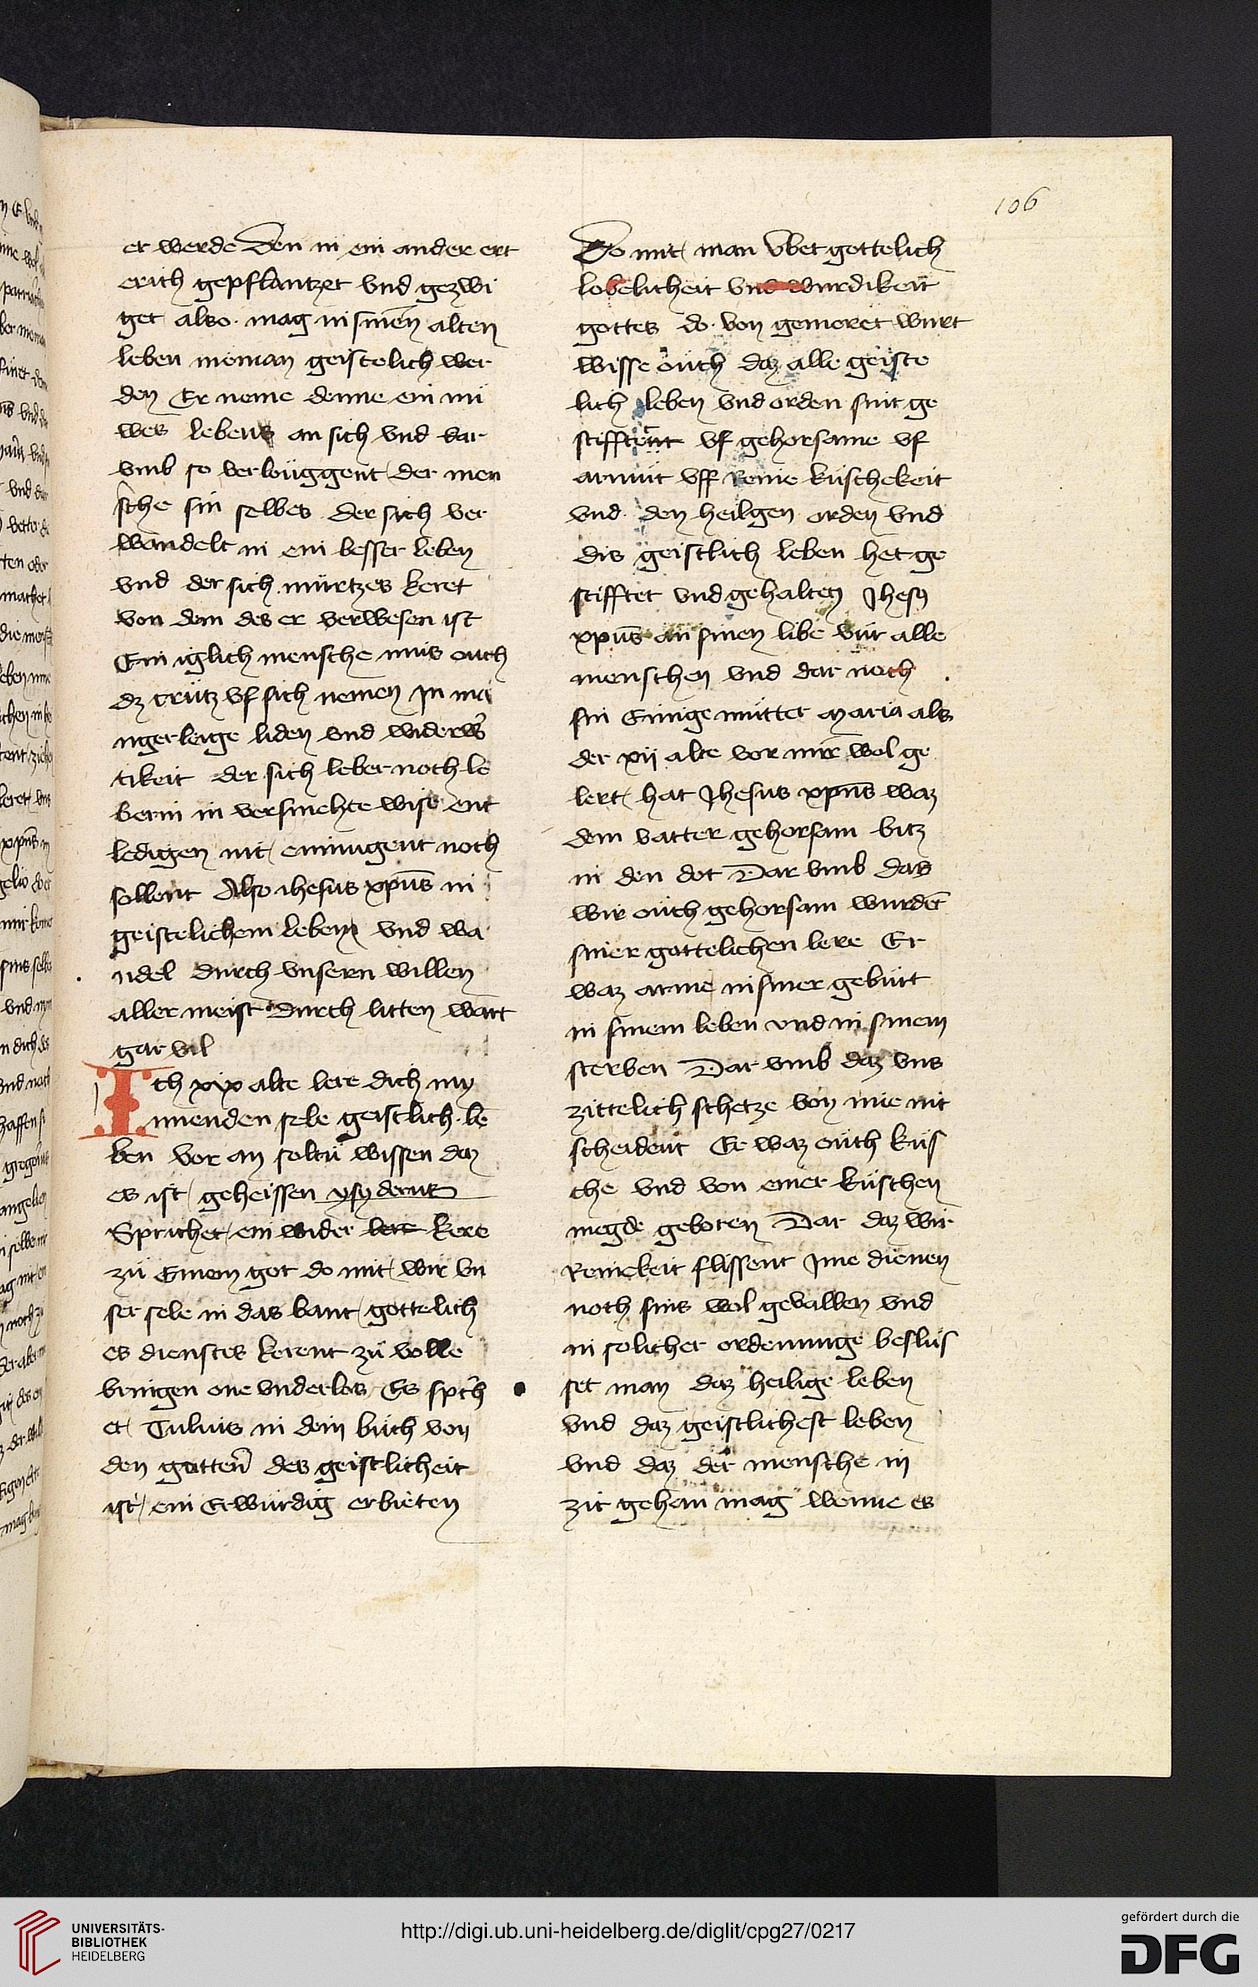 106
er werde den in ein ander ert
erich gepflantzet vnd gezwi
get also mag in sinen alten
leben nieman geistelich wer
den Er neme denne ein nu
wes lebens an sich vnd dar
vmb so verlöuggent der men
sche sin selbes der sich ver
wandelt in ein besser leben
vnd der sich mürtzes keret
von dem des er verwesen ist
Ein iglich mensche mus ouch
dz crütz vf sich nemen In ma
ngerleige liden vnd widerw
tikeit der sich leber noch le
berin in versmehte wise ent
ledigen nit enmugent noch
sollent Also ihesus xpus in
geistelichem leben vnd wa
ndel durch vnsern willen
aller meist durch litten wart
gar vil
Ich xix alte lere dich my
nnenden sele geistlich le
ben vor an soltu wissen daz
es ist geheissen
Sprichet ein wider lere kere
zü Einem got do mit wir vn
ser sele in das bant gottelich
es dienstes kerent zü volle
bringen one vnderlos Es sprch
et Tulius in dem büch von
den gotten des geistlicheit
ist ein Erwürdig erbieten
Do mit man vbet gottelich
lobelicheit vnd wurdikeit
gottes do von gemeret wurt
wisse ouch daz alle geiste
lich leben vnd orden sint ge
stifftent vf gehorsame vf
armüt vff Reine küschekeit
vnd den heilgen orden vnd
dis geistlich leben het ge
stifftet vnd gehalten Jhesus
xpus an sinen libe vür alle
menschen vnd dar noch
sin Einige mütter maria als
der xij alte vor mir wol ge
lert hat Jhesus xpus waz
dem vatter gehorsam bitz
in den dot Dar vmb das
wir ouch gehorsam wurdet
siner gottelichen lere Er
waz arme in siner gebürt
in sinem leben vnd in sinem
sterben Dar vmb daz vns
zittelich schetze von ime nit
scheident Er waz ouch küs
che vnd von einer küschen
megde geboren Dar daz wir
Reinekeit flissent Ime dienen
noch sins wol gevallen vnd
in solicher ordenunge beslüs
set man daz heilige leben
vnd daz geistlichest leben
vnd daz der mensche in
zit gehan mag wenne es
UNIVERSITÄTS-
BIBLIOTHEK
HEIDELBERG
http://digi.ub.uni-heidelberg.de/diglit/cpg27/0217
gefördert durch die
DFG